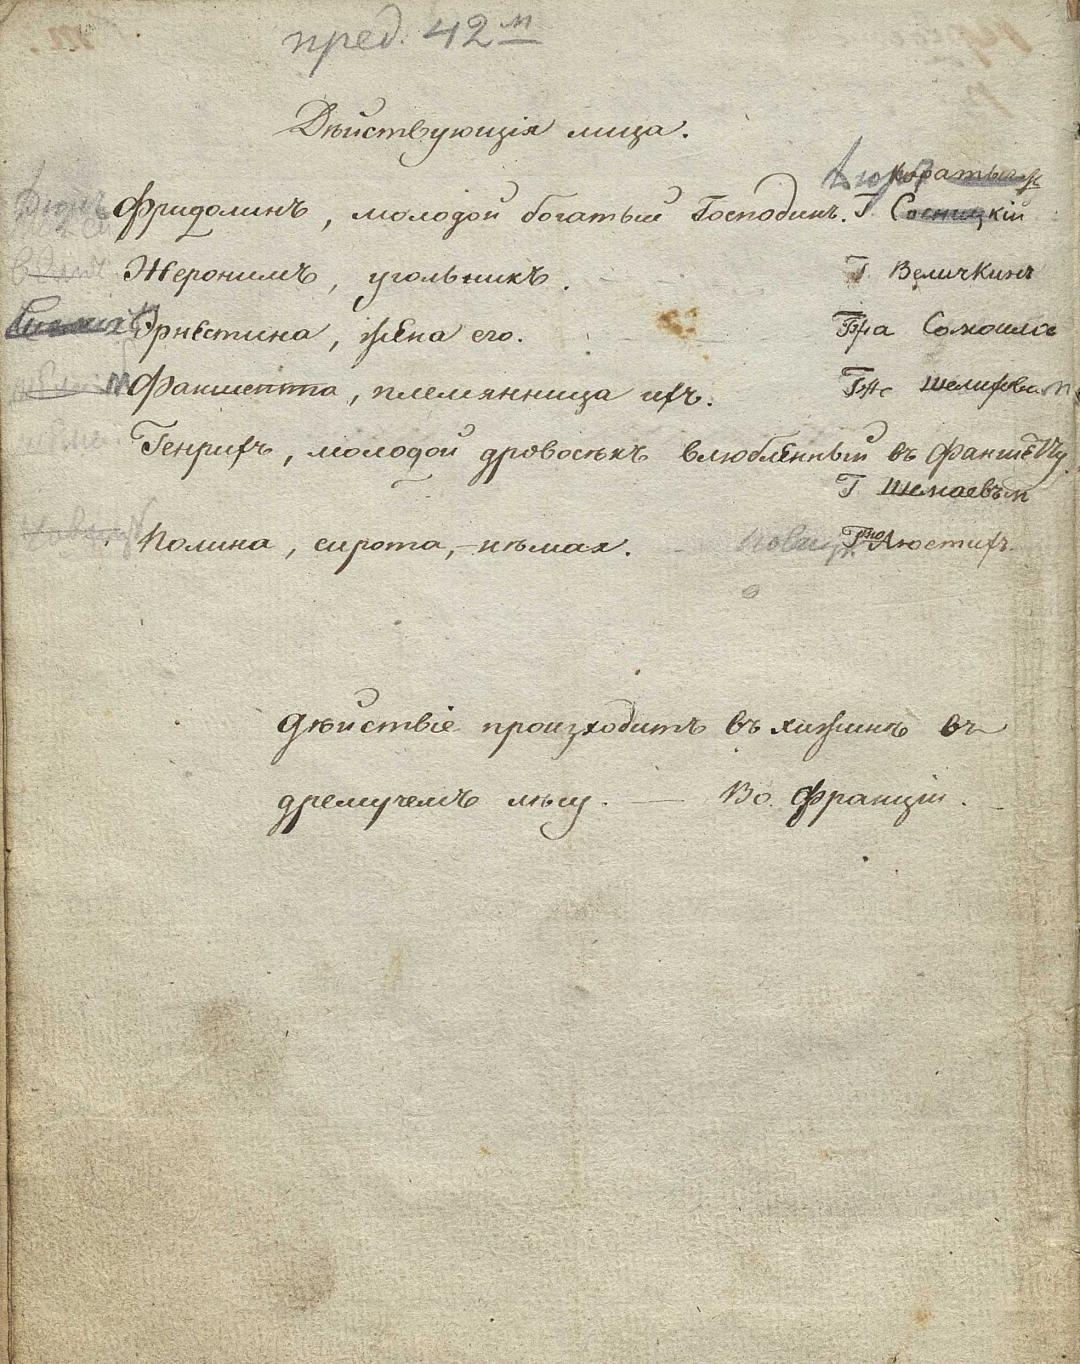 пред. 42 м
Дѣйствующія лица.
Каратыгин
Фридолинъ, молодой богатый Господинъ. Г. Сосницкій
Жеронимъ, угольникъ. Г. Величкинъ
Эрнестина, жена его. Гжа
Фаншетта, племянница ихъ. Гж Шелихова
Генрихъ, молодой дровосѣкъ влюбленный въ Фаншетту.
Г. Шемаевъ
Полина, сирота, нѣмая.
Дѣйствіе произходитъ въ хижинѣ въ
дремучемъ лѣсу. — Во Франціи.